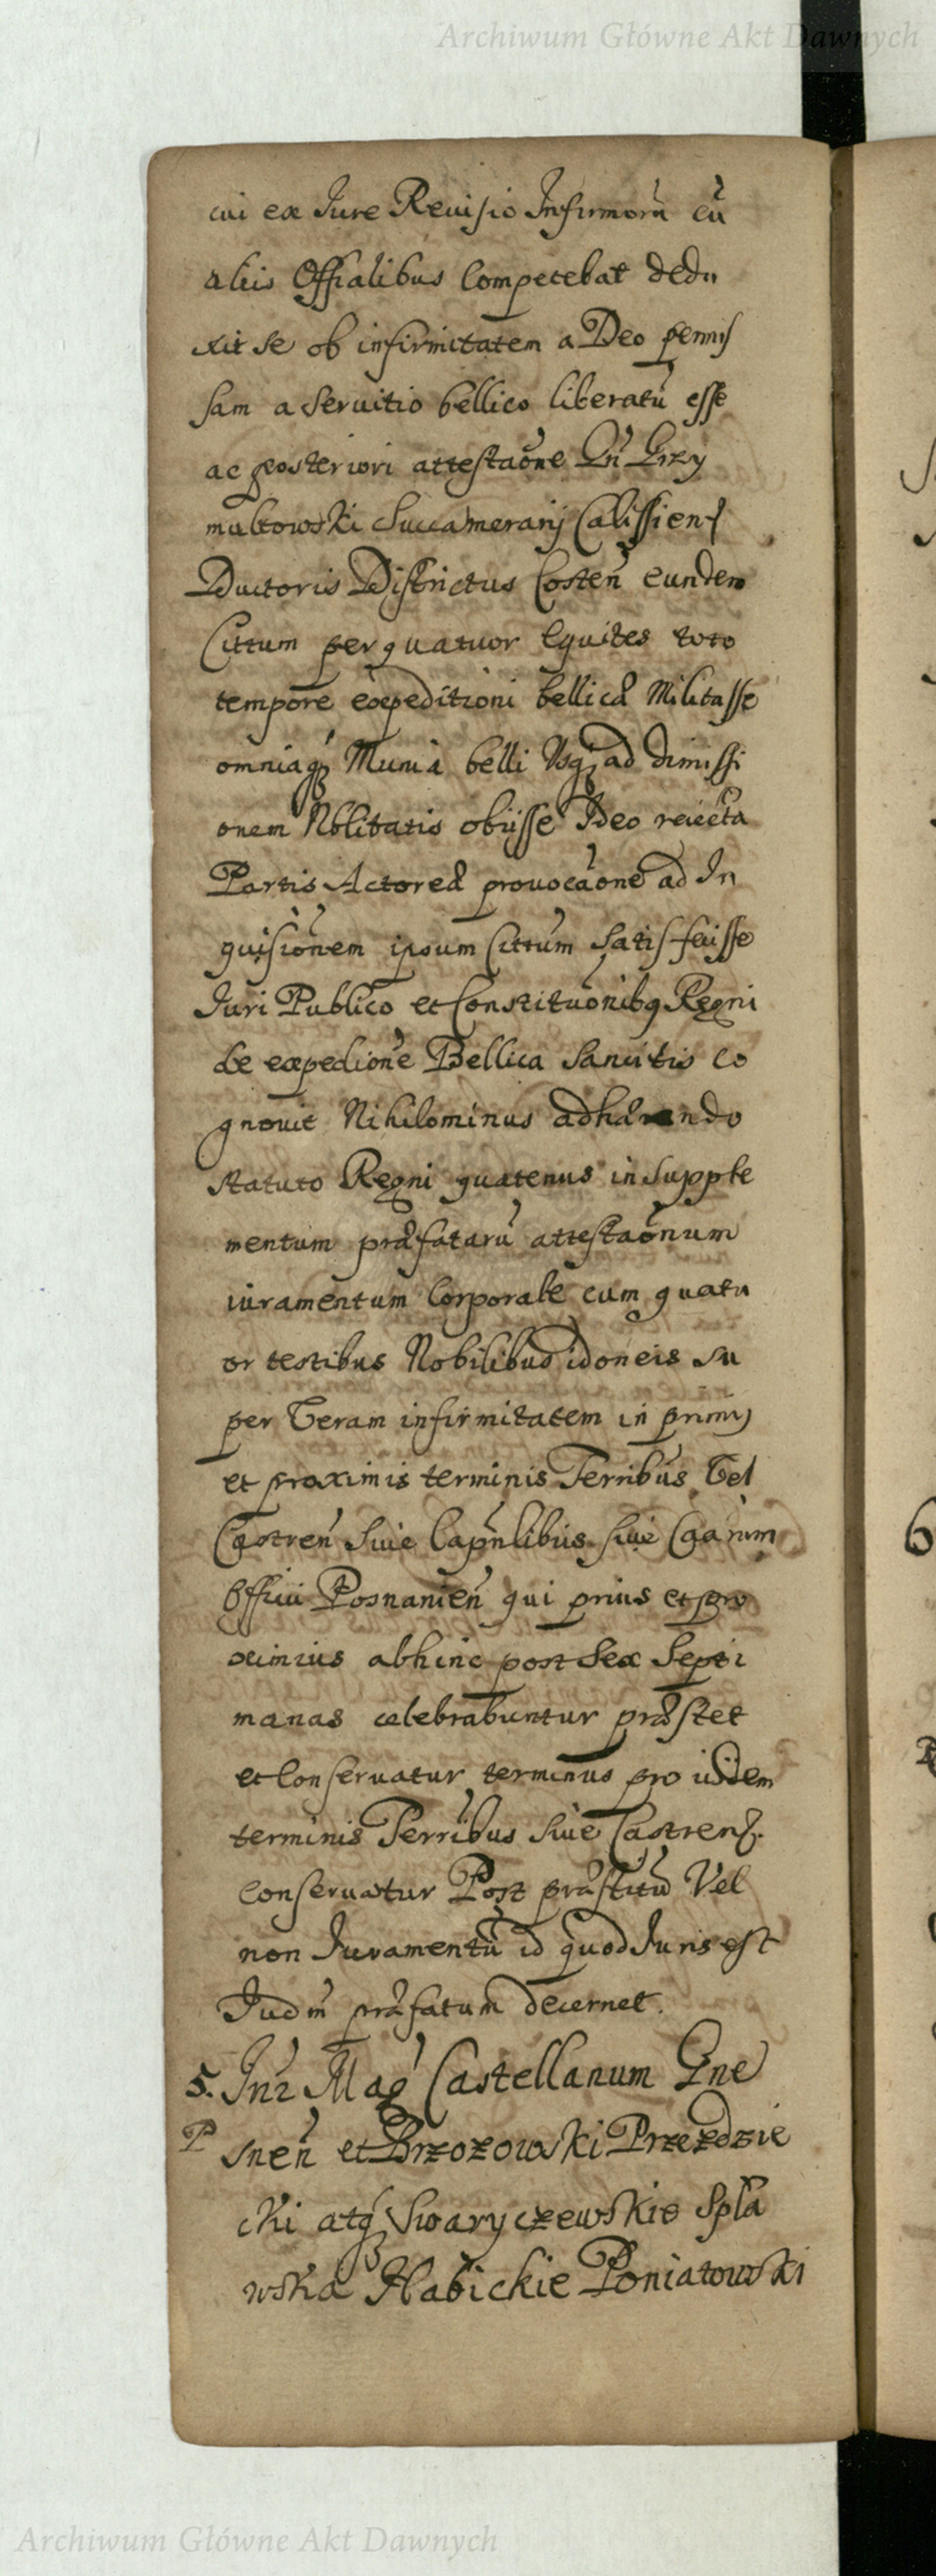 Archiwum Główne Akt Dawnych
cui ex Iure Reuisio Infirmorũ cũ
aliis Offialibus Competebat dedu
xit se ob infirmitatem a Deo permis
sam a Seruitio bellico liberatũ esse
ac posteriori attestaõne Gñ Grzy
mułtowski Succamerarij Calissiens
Ductoris Districtus Costeñ eundem
Cittum per quatuor Equites toto
tempore expeditioni bellicæ Militasse
omniaq Munia belli Usq ad dimissi
onem Nblitatis obiisse Ideo reiecta
Partis Actoreæ prouocaõne ad In
quisiõnem ipsum Cittũm Satisfeisse
Iuri Publico et Constituõnibq Regni
de expediõne Bellica Sancitis Co
gnouit Nihilominus adhærendo
statuto Regni quatenus in Supple
mentum præfatarũ attestaõnum
iuramentum Corporale cum quatu
or testibus Nobilibus idoneis su
per Veram infirmitatem in primis
et proximis terminis Terribus Vel
Castreñ Siue Capñlibus siue Caarum
Officii Posnanieñ qui prius et pro
ximius abhinc post Sex Septi
manas celebrabuntur præstet
et Conseruatur terminus pro iisdem
terminis Terribus Siue Castrens.
Conseruatur Post præstitũ Vel
non Iuramentũ id quod Iuris est
Iudm̃ præfatum decernet.
5. Intr Mag Castellanum Gne
P sneñ et Brzozowski Przezdzie
cki atq Swaryczewskie Spła
wska Habickie Poniatowski
Archiwum Główne Akt Dawnych